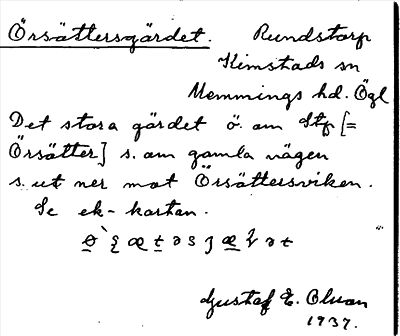 Örsättersgärdet. Rundstorp
Kimstads sn
Memmings hd. Ögl
Det stora gärdet ö. om Stf [=
Örsätter] s. om gamla vägen
s. ut ner mot Örsättersviken.
Se ek-kartan.
Gustaf E. Olson
1937.